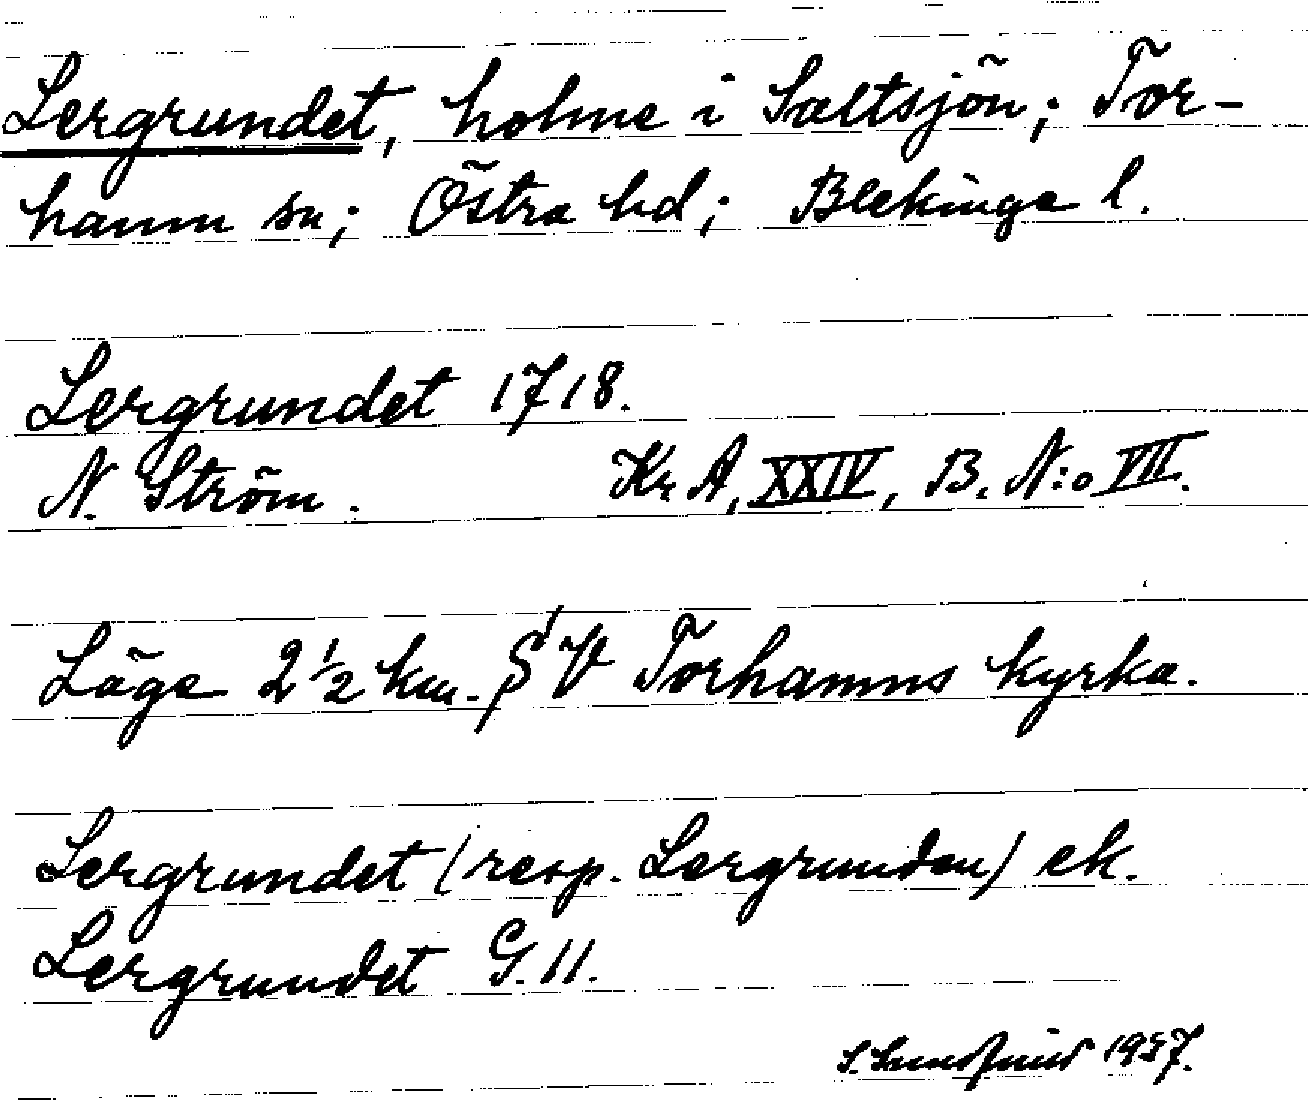 Lergrundet, holme i Saltsjön; Tor-
hamn sn; Östra hd; Blekinge l.
Lergrundet 1718.
N. Ström. Kr A, XXIV, B. N:o VII.
Läge 2 1/2 km. S V Torhamns kyrka.
Lergrundet (resp. Lergrunden) ek.
Lergrundet G. 11.
S. 1937.